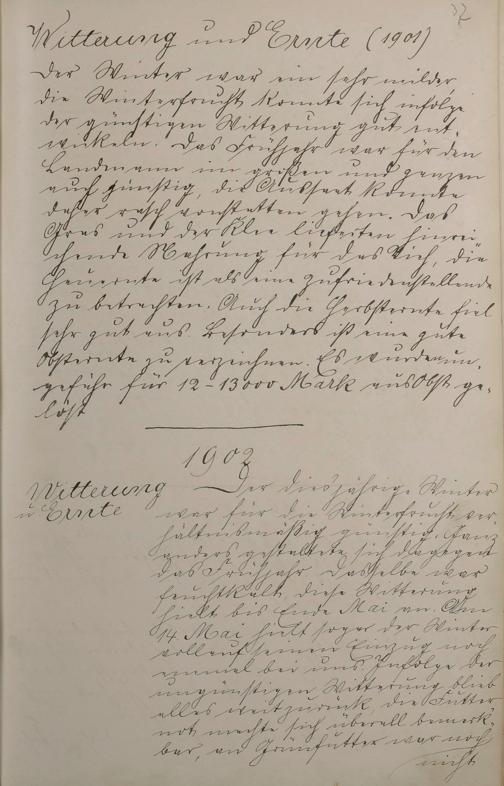 37
Witterung und Ernte (1901)
Der Winter war ein sehr milder
die Winterfrucht konnte sich infolge
der günstigen Witterung gut ent-
wickeln. Das Frühjahr war für den
Landmann im großen und ganzen
auch günstig, die Aussaat konnte
daher rasch vonstatten gehen. Das
Gras und der Klee lieferten hinrei-
chende Nahrung für das Vieh, die
Heuernte ist als eine zufriedenstellende
zu betrachten. Auch die Herbsternte fiel
sehr gut aus. Besonders ist eine gute
Obsternte zu verzeichnen. Es wurden un-
gefähr für 12-13000 Mark aus Obst ge-
löst
1902
Witterung
u Ernte
Der diesjährige Winter
war für die Winterfrucht ver
hältnismäßig günstig. Ganz
anders gestaltete sich dagegen
das Frühjahr. Dasselbe war
feuchtkalt, diese Witterung
hielt bis Ende Mai an. Am
14. Mai hielt sogar der Winter
vollauf seinen Einzug noch
einmal bei uns. Infolge der
ungünstigen Witterung blieb
alles weit zurück, die Futter
not machte sich überall bemerk-
bar, an Grünfutter war noch
nicht